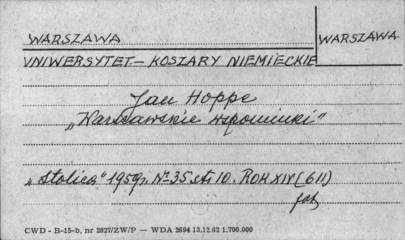 WARSZAWA
WARSZAWA
UNIWERSYTET – KOSZARY NIEMIECKIE
Jan Hoppe
„Warszawskie wspominki"
„Stolica" 1959r. Nr 35 str 10. ROK XIV (611)
fot.
CWD - B-15-b, nr 2827/ZW/P — WDA 2694 13.12.62 1.700.000